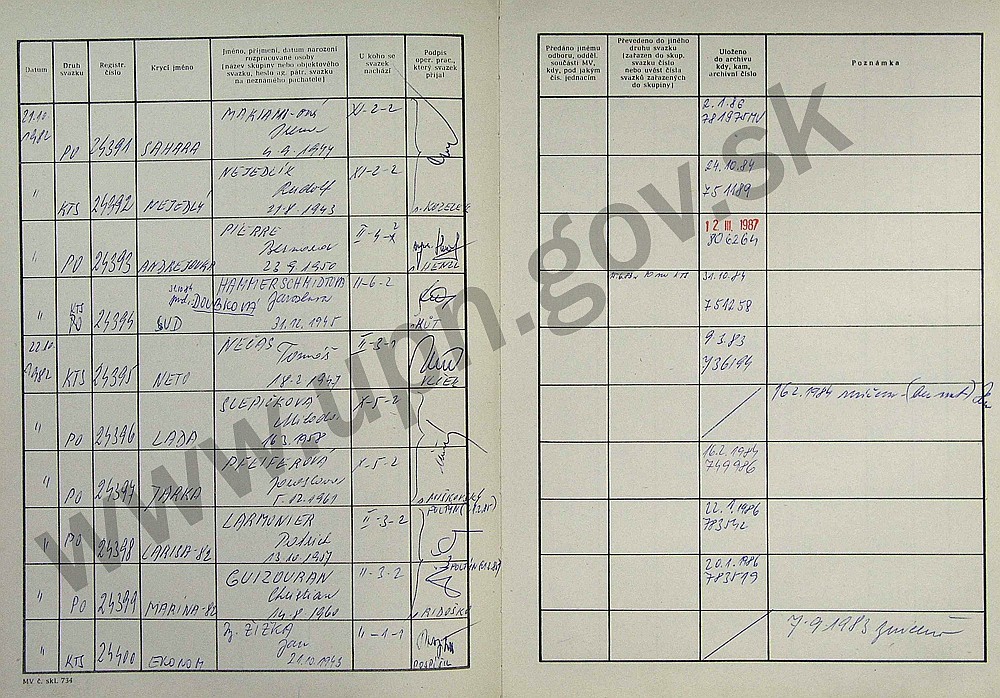 Datum
Druh
svazku
Registr.
číslo
Krycí jméno
Jméno, příjmení, datum narození
rozpracované osoby
(název skupiny nebo objektového
svazku, heslo ag. pátr. svazku
na neznámého pachatele)
U koho se
svazek
nachází
Podpis
oper. prac.,
který svazek
přijal
Předáno jinému
odboru, odděl.
součásti MV,
kdy, pod jakým
čís. jednacím
Převedeno do jiného
druhu svazku
(zařazen do skup.
svazku číslo
nebo uvést čísla
svazků zařazených
do skupiny)
Uloženo
do archivu
kdy, kam,
archivní číslo
Poznámka
21.10
1982 PO 24391 SAHARA
4.9.1944
XI-2-2
2.1.86
781975 MV
" KTS 24392 NEJEDLÝ
NEJEDLÍK
Rudolf
21.8.1943
XI-2-2
KOZELEK
24.10.84
751189
" PO 24393 ANDREJOVKA
PIERRE
23.9.1950
HENZL
12 III. 1987
806264
" KTS
PO 24394 SUD
DOUBKOVÁ
HAMMERSCHMIDTOVÁ
Jaroslava
31.12.1945
II-6-2
HŮT
31.10.84
751258
22.10.
1982 KTS 24395 NETO
NEČAS
Tomáš
18.2.1947
II-3-1
VLČEK
9.3.83
736194
" PO 24396 LADA
SLEPIČKOVÁ
16.3.1958
X-5-2
16.2.1984
" PO 24397 JARKA
PFEIFEROVÁ
Jaroslava
5.12.1961
X-5-2
MIŠKOVSKÝ
16.2.1984
749986
" PO 24398 LARISA-82
LARMUNIER
Patrick
13.10.1957
II-3-2
22.1.1986
783542
" PO 24399 MARINA-82
GUIZOURAN
Christian
14.8.1960
II-3-2
RIDOŠKO
20.1.1986
783519
" KTS 24400 EKONOM
Ing. ŽIŽKA
Jan
21.10.1943
II-1-1
POSPÍŠIL
7.9.1983 zničeno
MV č. skl. 734
www.upn.gov.sk